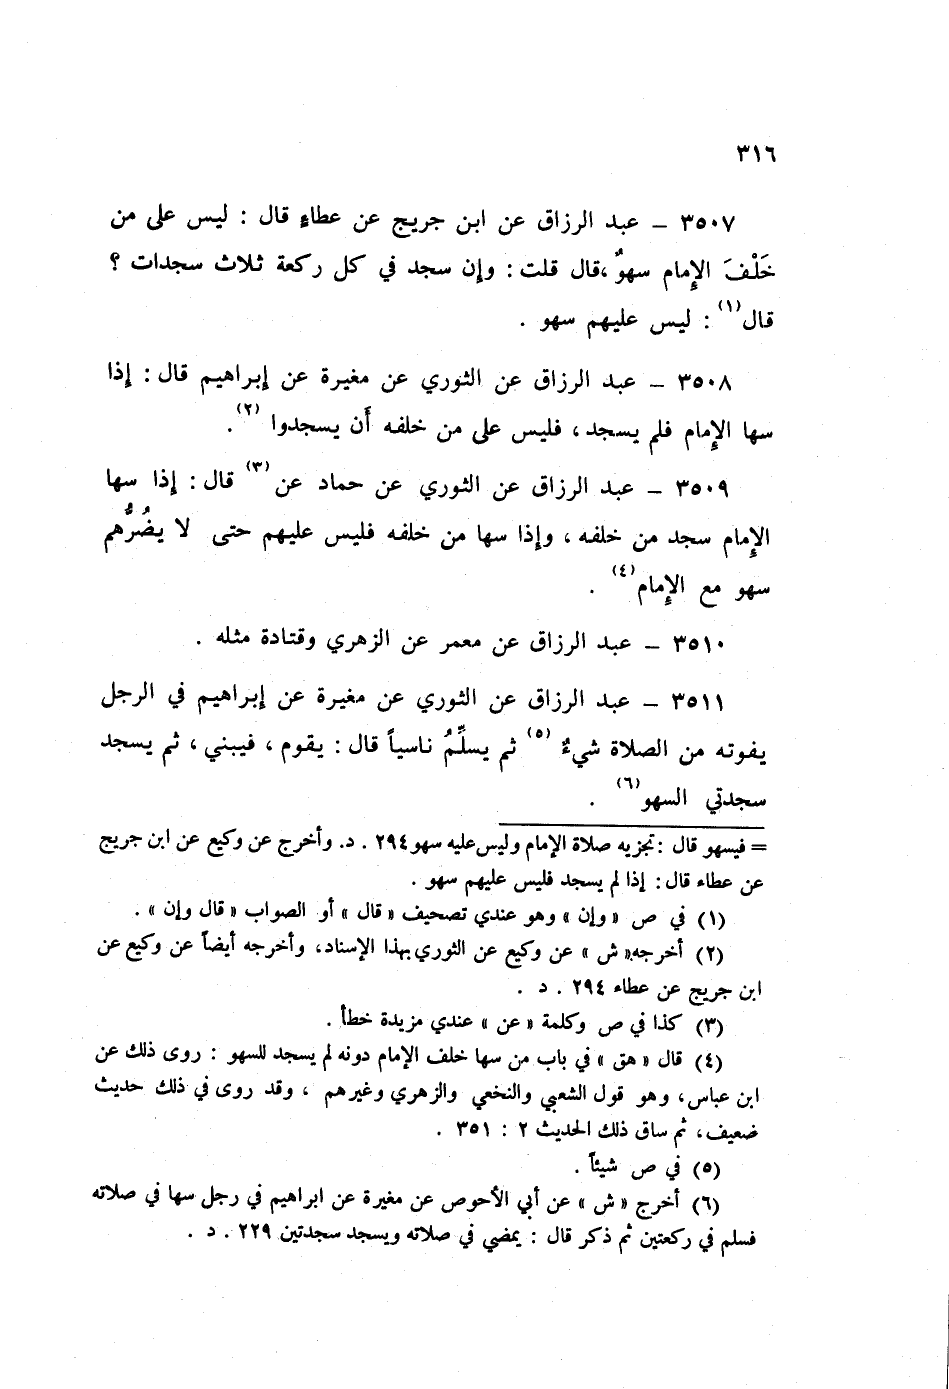 ٣١٦
٣٥٠٧ ـ عبد الرزاق عن ابن جريج عن عطاءٍ قال : ليس على من
خَلْفَ الإِمام سهوٌ ،قال قلت : وإن سجد في كل ركعة ثلاث سجدات ؟
قال(١) : ليس عليهم سهو .
٣٥٠٨ ـ عبد الرزاق عن الثوري عن مغيرة عن إبراهيم قال : إذا
سها الإِمام فلم يسجد ، فليس على من خلفه أَن يسجدوا (٢).
٣٥٠٩ ـ عبد الرزاق عن الثوري عن حماد عن(٣) قال : إذا سها
الإِمام سجد من خلفه ، وإذا سها من خلفه فليس عليهم حتى لا يضُرُّهُم
سهو مع الإِمام(٤) .
٣٥١٠ ـ عبد الرزاق عن معمر عن الزهري وقتادة مثله .
٣٥١١ ـ عبد الرزاق عن الثوري عن مغيرة عن إبراهيم في الرجل
يفوته من الصلاة شيءٌ (٥) ثم يسلِّمُ ناسياً قال : يقوم ، فيبني ، ثم يسجد
سجدتي السهو(٦) .
= فيسهو قال : تجزيه صلاة الإمام وليس عليه سهو ٢٩٤ . د. وأخرج عن وكيع عن ابن جريج
عن عطاء قال : إذا لم يسجد فليس عليهم سهو .
(١) في ص « وإن » وهو عندي تصحيف « قال » أو الصواب « قال وإن » .
(٢) أخرجه« ش » عن وكيع عن الثوري بهذا الإسناد، وأخرجه أيضاً عن وكيع عن
ابن جريج عن عطاء ٢٩٤ . د .
(٣) كذا في ص وكلمة « عن » عندي مزيدة خطأ .
(٤) قال « هق » في باب من سها خلف الإمام دونه لم يسجد للسهو : روى ذلك عن
ابن عباس، وهو قول الشعبي والنخعي والزهري وغيرهم ، وقد روى في ذلك حديث
ضعيف، ثم ساق ذلك الحديث ٢ : ٣٥١ .
(٥) في ص شيئاً .
(٦) أخرج « ش » عن أبي الأحوص عن مغيرة عن ابراهيم في رجل سها في صلاته
فسلم في ركعتين ثم ذكر قال : يمضي في صلاته ويسجد سجدتين ٢٢٩ . د .